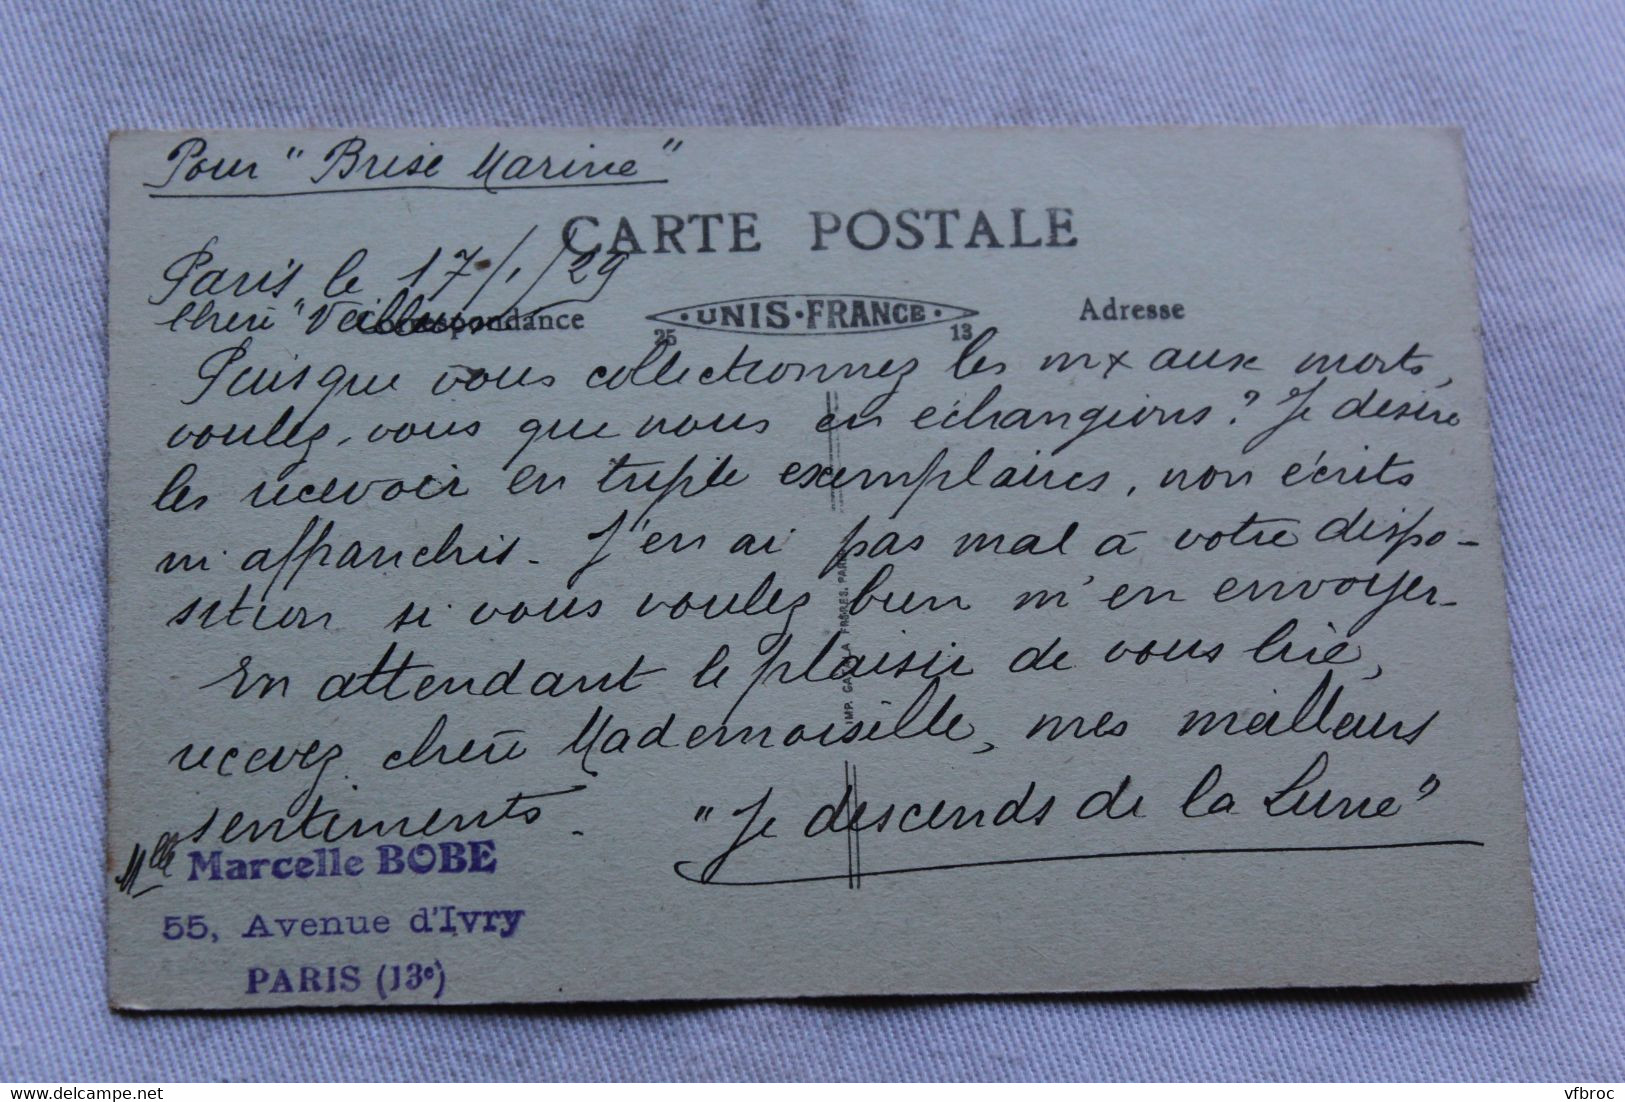 Pour "Brise Marine"
CARTE POSTALE
Paris le 17/1/29
Chère "
Correspondance
UNIS·FRANCE
25
13
Adresse
Puisque vous collectionnez les mx aux morts,
voulez-vous que nous en échangions? Je désire
les recevoir en triple exemplaires, non écrits
ni affranchis. J'en ai pas mal à votre dispo-
sition si vous voulez bien m'en envoyer.
En attendant le plaisir de vous lire,
recevez chère Mademoiselle, mes meilleurs
sentiments.
"Je descends de la Lune"
IMP. FRÈRES, PARIS
Mlle Marcelle BOBE
55, Avenue d'Ivry
PARIS (13e)
vfbroc